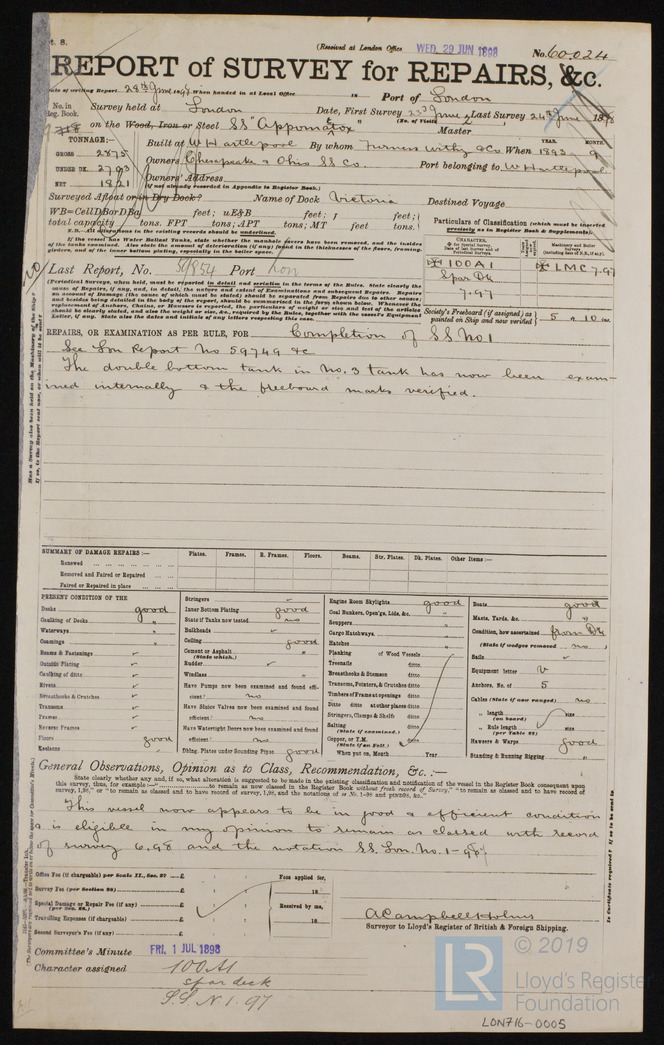 (Received at London Office WED. 29 JUN 1898
No. 60,024
REPORT of SURVEY for REPAIRS, &c.
Date of writing Report 28th June 1898 When handed in at Local Office
Port of London
No. in Reg. Book.
Survey held at London
Date, First Survey 23rd June Last Survey 24th June 1898
(No. of Visits 2
718 on the Wood, Iron or Steel SS "Appomattox"
Master
TONNAGE:—
GROSS 2875
UNDER DK. 2793
NET 1821
Built at W Hartlepool By whom Furness Withy & Co When 1893
YEAR. MONTH. 9
Owners Chesapeake & Ohio SS Co.
Port belonging to W Hartlepool
Owners' Address
(if not already recorded in Appendix to Register Book.)
Surveyed Afloat or in Dry Dock?
Name of Dock Victoria
Destined Voyage
WB=CellDBorDBa feet; uE&B feet; f feet;
total capacity tons. FPT tons; APT tons; MT feet tons.
N.B.—All alterations in the existing records should be underlined.
If the vessel has Water Ballast Tanks, state whether the manhole covers have been removed, and the insides
of the tanks examined. Also state the amount of deterioration (if any) found in the thicknesses of the floors, framing,
girders, and of the inner bottom plating, especially in the boiler space.
Particulars of Classification (which must be inserted
precisely as in Register Book & Supplements).
CHARACTER,
Machinery and Boiler
Surveys
(including date of N.B., if any).
✠ 100A1
Spar Dk
7.97
✠ LMC 7.97
Last Report, No. 59954 Port Lon
(Periodical Surveys, when held, must be reported in detail and seriatim in the terms of the Rules. State clearly the
cause of Repairs, if any, and, in detail, the nature and extent of Examinations and subsequent Repairs. Repairs
on account of Damage (the cause of which must be stated) should be separated from Repairs due to other causes;
and besides being detailed in the body of the report, should be summarised in the form shown below.
Society's Freeboard (if assigned) as
painted on Ship and now verified
5 ft 10 ins.
REPAIRS, OR EXAMINATION AS PER RULE, FOR Completion of SS No 1
See Lon Report No 59749 &c
The double bottom tank in No. 3 tank has now been exam-
ined internally & the freeboard marks verified.
SUMMARY OF DAMAGE REPAIRS:—
Plates. Frames. R. Frames. Floors. Beams. Str. Plates. Dk. Plates. Other Items:—
Renewed
Removed and Faired or Repaired
Faired or Repaired in place
PRESENT CONDITION OF THE
Decks good
Caulking of Decks "
Waterways "
Coamings "
Beams & Fastenings ✓
Outside Plating ✓
Caulking of ditto ✓
Rivets ✓
Breasthooks & Crutches ✓
Transoms ✓
Frames ✓
Reverse Frames ✓
Floors good
Keelsons "
Stringers ✓
Inner Bottom Plating good
State if Tanks now tested no
Bulkheads ✓
Ceiling good
Cement or Asphalt "
(State which.)
Rudder ✓
Windlass "
Have Pumps now been examined and found effi-
cient? no
Have Sluice Valves now been examined and found
efficient? no
Have Watertight Doors now been examined and found
efficient? no
Dblng. Plates under Sounding Pipes good
Engine Room Skylights good
Coal Bunkers, Open'gs, Lids, &c. "
Scuppers "
Cargo Hatchways "
Hatches "
Planking of Wood Vessels
Treenails ditto
Breasthooks & Stemson ditto
Transoms, Pointers, & Crutches ditto
Timbers of Frame at openings ditto
Ditto ditto at other places ditto
Stringers, Clamps & Shelfs ditto
Salting ditto
(State if examined.)
Copper, or Y.M. ditto
(State if on Felt.)
When put on, Month Year
Boats good
Masts, Yards, &c. "
Condition, how ascertained from Dk
(State if wedges removed no)
Sails ✓
Equipment letter V
Anchors, No. of 5
Cables (State if now ranged) no
" length size
(on board)
" Rule length size
(per Table 22)
Hawsers & Warps good
Standing & Running Rigging "
General Observations, Opinion as to Class, Recommendation, &c.:—
State clearly whether any and, if so, what alteration is suggested to be made in the existing classification and notification of the vessel in the Register Book consequent upon
This vessel now appears to be in good & efficient condition
& is eligible in my opinion to remain as classed with record
of survey 6.98 and the notation SS. Lon. No. 1-98
Office Fee (if chargeable) per Scale II., Sec. 27 £
Survey Fee (per Section 28) £
Special Damage or Repair Fee (if any) £
Travelling Expenses (if chargeable) £
Second Surveyor's Fee (if any) £
Fees applied for,
18
Received by me,
18
A Campbell Holms
Surveyor to Lloyd's Register of British & Foreign Shipping.
Committee's Minute FRI. 1 JUL 1898
Character assigned 100 A1
spar deck
S.S. N 1. 97
© 2019
LR
Lloyd's Register
Foundation
LON716-0005